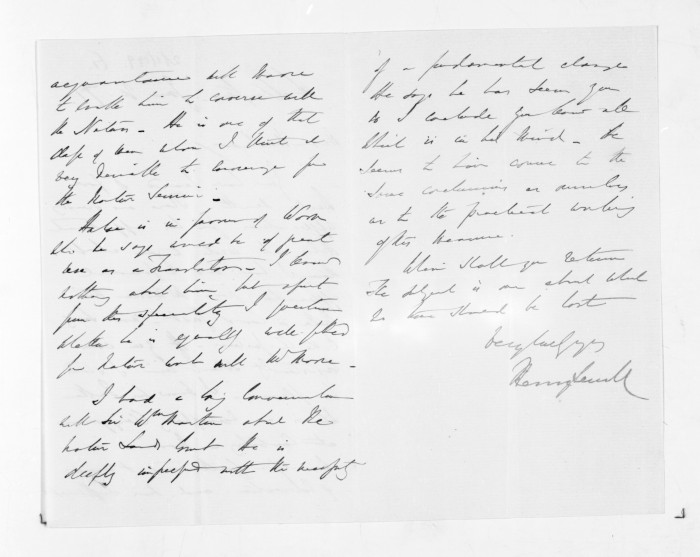 acquaintance with Maori
to enable him to converse with
the Natives - He is one of that
class of men whom I think it
very desirable to encourage for
the Native Service -
Halse is in favour of Worn
who he says would be of great
use as a Translator - I know
nothing about him, but apart
from this speciality I question
whether he is equally well fitted
for Native work with Mr Moore -
I had a long conversation
with Sir Wm Martin about the
Native Land Court He is
deeply impressed with the necessity
of a fundamental change
He says he has seen you
so I conclude you know all
that is in his mind - He
seems to have come to the
same conclusions as ourselves
as to the practical working
of this measure.
When shall you return
The subject is one about which
no time should be lost
Very truly yrs
Henry Sewell